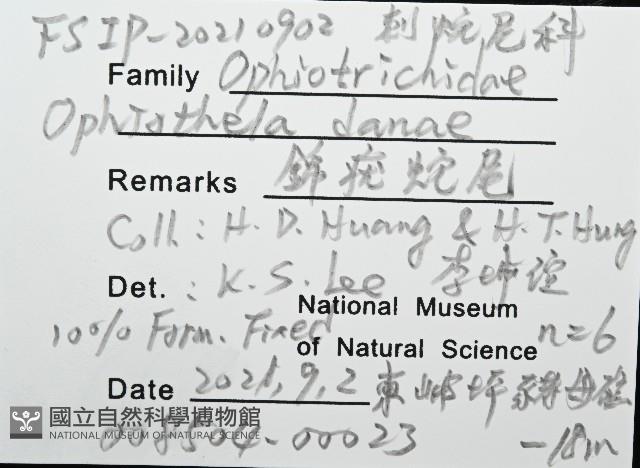 FSIP-20210902 刺蛇尾科
Family Ophiotrichidae
Ophiothela danae
Remarks 錦疣蛇尾
Coll.: H. D. Huang & H. T. Hung
Det.: K. S. Lee 李坤瑄
National Museum
10% Form. Fixed n=6
of Natural Science
Date 2021, 9, 2 東嶼坪豬母礁
國立自然科學博物館
NATIONAL MUSEUM OF NATURAL SCIENCE
-00023 -18m